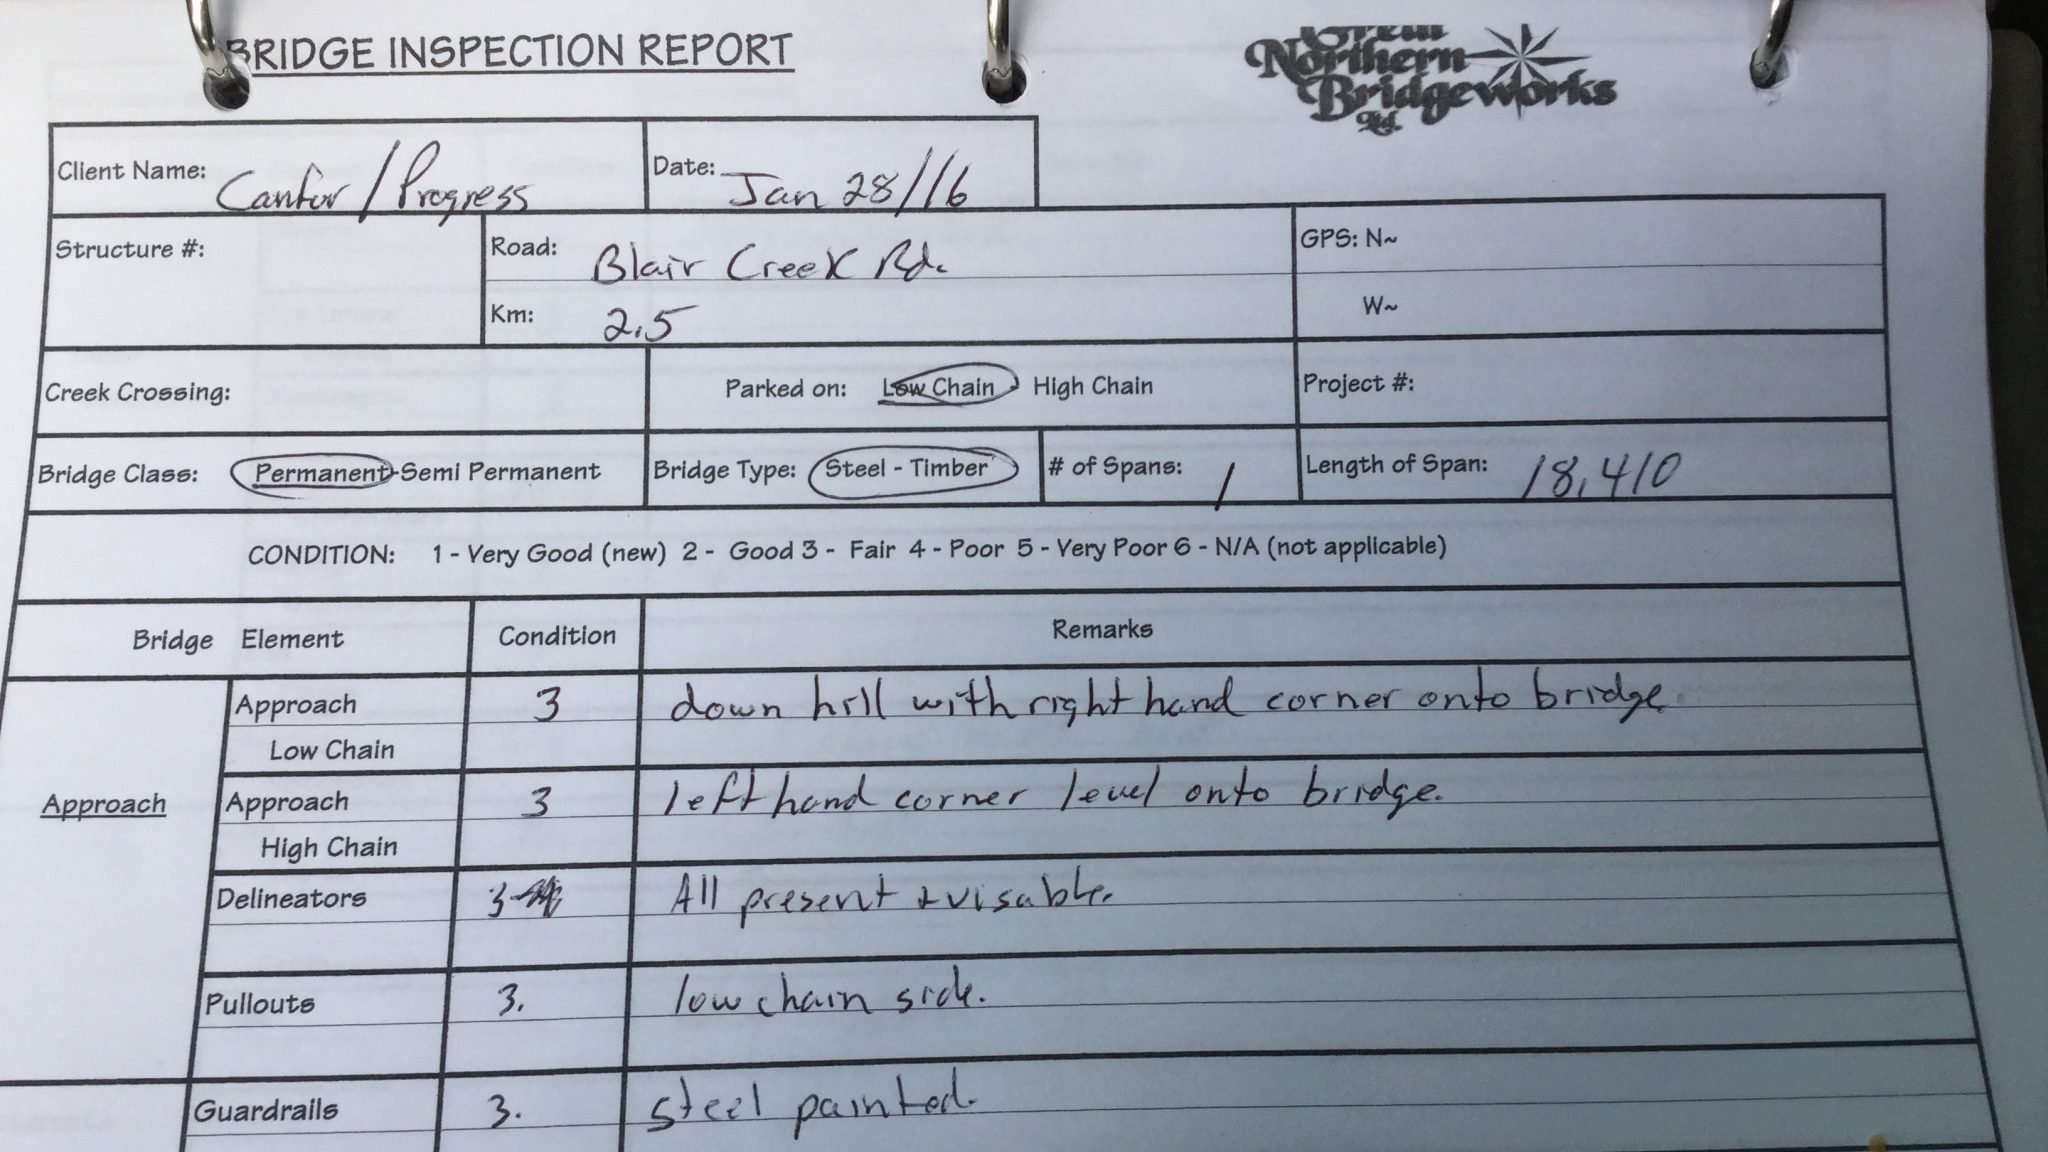 BRIDGE INSPECTION REPORT
Great
Northern
Bridgeworks
Ltd.
Client Name: Canfor / Progress Date: Jan 28//16
Structure #: Road: Blair Creek Rd. GPS: N~
Km: 2.5 W~
Creek Crossing: Parked on: Low Chain High Chain Project #:
Bridge Class: Permanent-Semi Permanent Bridge Type: Steel - Timber # of Spans: 1 Length of Span: 18,410
CONDITION: 1 - Very Good (new) 2 - Good 3 - Fair 4 - Poor 5 - Very Poor 6 - N/A (not applicable)
Bridge Element Condition Remarks
Approach Low Chain 3 down hill with right hand corner onto bridge.
Approach
Approach High Chain 3 left hand corner level onto bridge.
Delineators 3 All present + visable.
Pullouts 3. low chain side.
Guardrails 3. steel painted.